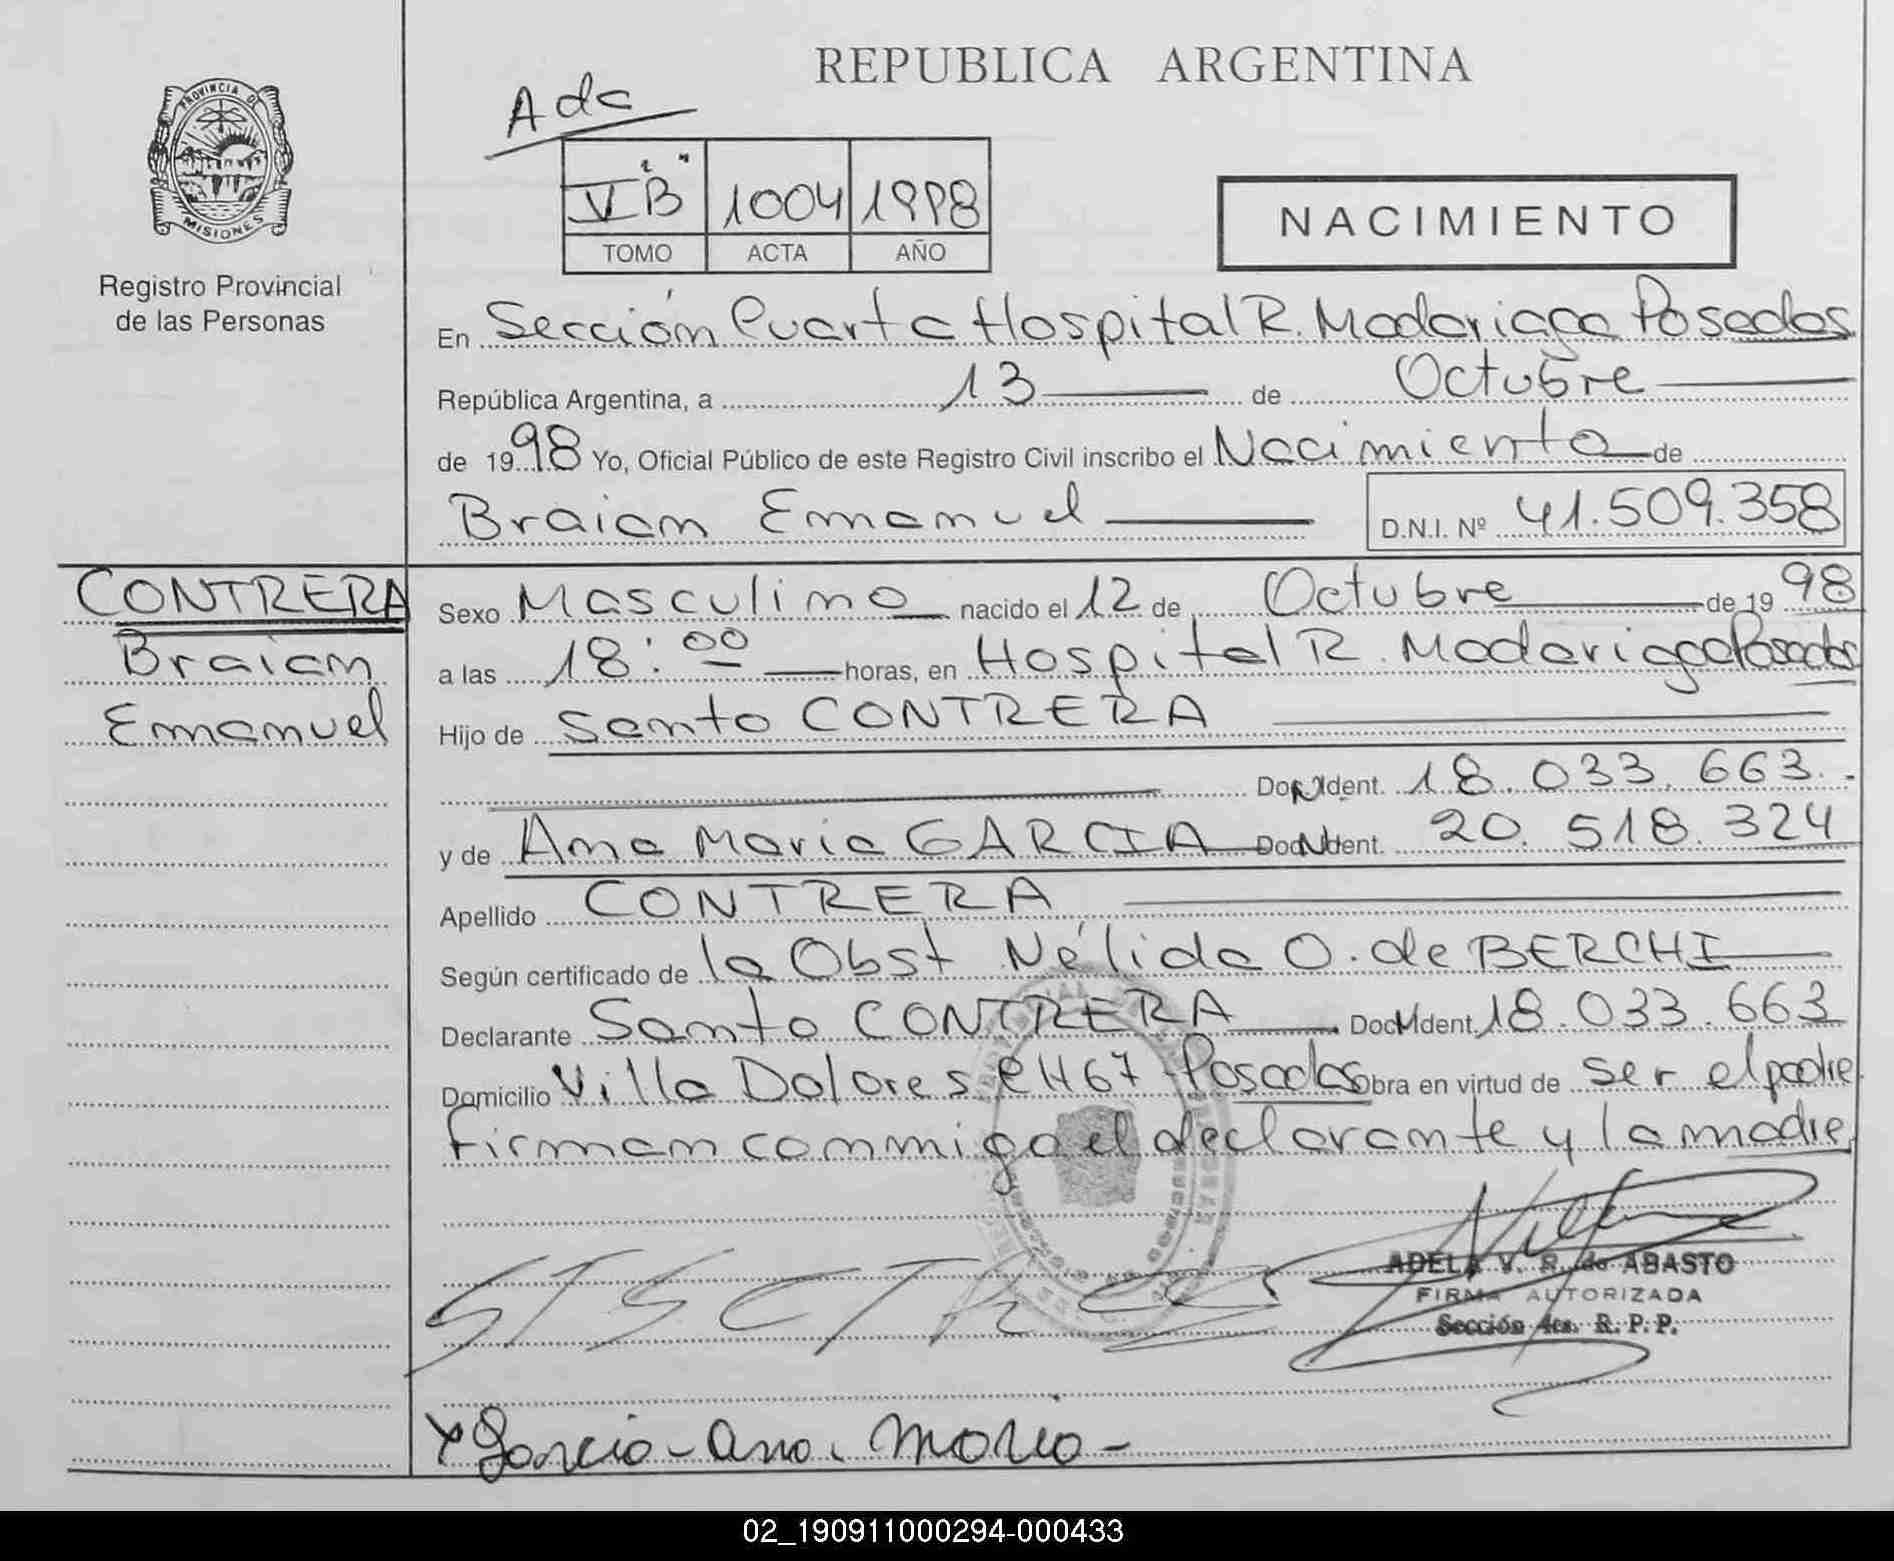 REPUBLICA ARGENTINA
PROVINCIA DE
MISIONES
Registro Provincial
de las Personas
Adc
V "B" 1004 1998
TOMO ACTA AÑO
NACIMIENTO
En Sección Cuarta Hospital R. Madariaga Posadas
República Argentina, a 13 de Octubre
de 1998 Yo, Oficial Público de este Registro Civil inscribo el Nacimiento de
Braian Emanuel D.N.I. Nº 41.509.358
CONTRERA
Braian
Emanuel
Sexo Masculino nacido el 12 de Octubre de 19 98
a las 18:00 horas, en Hospital R. Madariaga Posadas
Hijo de Santo CONTRERA
Doc. Ident. 18.033.663.-
y de Ana Maria GARCIA Doc. Ident. 20.518.324
Apellido CONTRERA
Según certificado de la Obst Nélida O. de BERCHI
Declarante Santo CONTRERA Doc. Ident. 18.033.663
Domicilio Villa Dolores CH67 Posadas obra en virtud de ser el padre
firman conmigo el declarante y la madre
ADELA V. R. de ABASTO
FIRMA AUTORIZADA
Sección 4ta. R. P. P.
x Garcia - Ana. Maria -
02_190911000294-000433